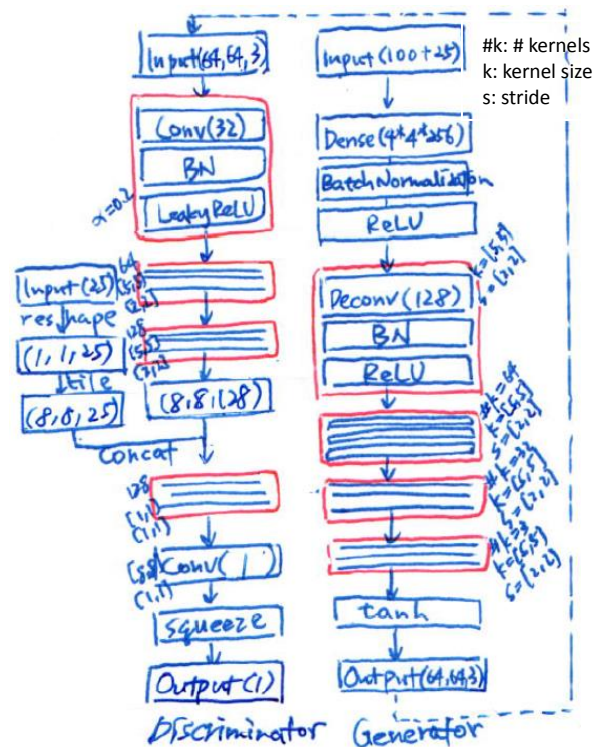 #k: # kernels
k: kernel size
s: stride
Input(64,64,3)
Conv(32)
BN
LeakyReLU
α=0.2
64
(5,5)
(2,2)
Input(25)
reshape
(1,1,25)
tile
(8,8,25)
128
(5,5)
(2,2)
(8,8,128)
Concat
128
(1,1)
(1,1)
(8,8)
(1,1)
Conv(1)
squeeze
Output(1)
Discriminator
Input(100+25)
Dense(4*4*256)
BatchNormalization
ReLU
k=(5,5)
s=(2,2)
Deconv(128)
BN
ReLU
#k=64
k=(5,5)
s=(2,2)
#k=32
k=(5,5)
s=(2,2)
#k=3
k=(5,5)
s=(2,2)
tanh
Output(64,64,3)
Generator